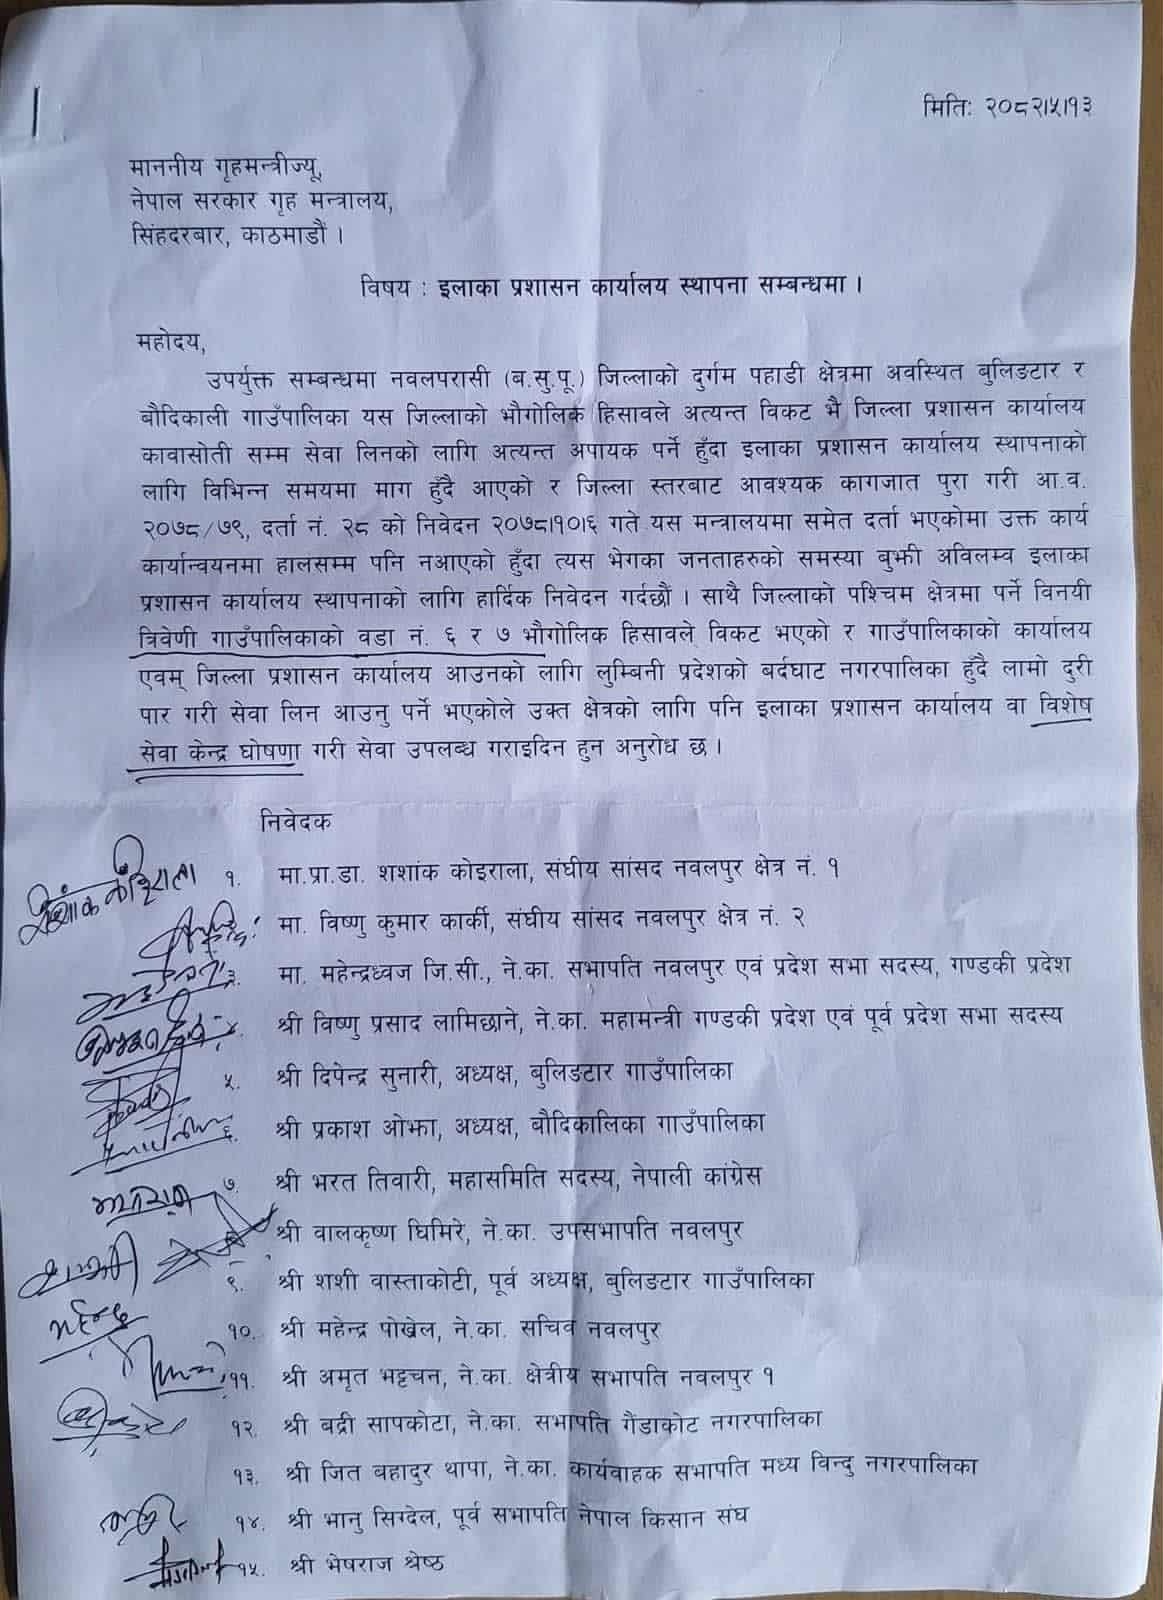 मिति: २०८२।५।१३
माननीय गृहमन्त्रीज्यू,
नेपाल सरकार गृह मन्त्रालय,
सिंहदरबार, काठमाडौं ।
विषय : इलाका प्रशासन कार्यालय स्थापना सम्बन्धमा ।
महोदय,
उपर्युक्त सम्बन्धमा नवलपरासी (ब.सु.पू.) जिल्लाको दुर्गम पहाडी क्षेत्रमा अवस्थित बुलिङटार र
बौदिकाली गाउँपालिका यस जिल्लाको भौगोलिक हिसावले अत्यन्त विकट भै जिल्ला प्रशासन कार्यालय
कावासोती सम्म सेवा लिनको लागि अत्यन्त अपायक पर्ने हुँदा इलाका प्रशासन कार्यालय स्थापनाको
लागि विभिन्न समयमा माग हुँदै आएको र जिल्ला स्तरबाट आवश्यक कागजात पुरा गरी आ.व.
२०७८/७९, दर्ता नं. २८ को निवेदन २०७८।१०।६ गते यस मन्त्रालयमा समेत दर्ता भएकोमा उक्त कार्य
कार्यान्वयनमा हालसम्म पनि नआएको हुँदा त्यस भेगका जनताहरुको समस्या बुझी अविलम्व इलाका
प्रशासन कार्यालय स्थापनाको लागि हार्दिक निवेदन गर्दछौं । साथै जिल्लाको पश्चिम क्षेत्रमा पर्ने विनयी
त्रिवेणी गाउँपालिकाको वडा नं. ६ र ७ भौगोलिक हिसावले विकट भएको र गाउँपालिकाको कार्यालय
एवम् जिल्ला प्रशासन कार्यालय आउनको लागि लुम्बिनी प्रदेशको बर्दघाट नगरपालिका हुँदै लामो दुरी
पार गरी सेवा लिन आउनु पर्ने भएकोले उक्त क्षेत्रको लागि पनि इलाका प्रशासन कार्यालय वा विशेष
सेवा केन्द्र घोषणा गरी सेवा उपलब्ध गराइदिन हुन अनुरोध छ ।
निवेदक
शशांक कोइराला १. मा.प्रा.डा. शशांक कोइराला, संघीय सांसद नवलपुर क्षेत्र नं. १
मा. विष्णु कुमार कार्की, संघीय सांसद नवलपुर क्षेत्र नं. २
३. मा. महेन्द्रध्वज जि.सी., ने.का. सभापति नवलपुर एवं प्रदेश सभा सदस्य, गण्डकी प्रदेश
४. श्री विष्णु प्रसाद लामिछाने, ने.का. महामन्त्री गण्डकी प्रदेश एवं पूर्व प्रदेश सभा सदस्य
५. श्री दिपेन्द्र सुनारी, अध्यक्ष, बुलिङटार गाउँपालिका
६. श्री प्रकाश ओझा, अध्यक्ष, बौदिकालिका गाउँपालिका
७. श्री भरत तिवारी, महासमिति सदस्य, नेपाली कांग्रेस
श्री वालकृष्ण घिमिरे, ने.का. उपसभापति नवलपुर
९. श्री शशी वास्ताकोटी, पूर्व अध्यक्ष, बुलिङटार गाउँपालिका
महेन्द्र १०. श्री महेन्द्र पोखेल, ने.का. सचिव नवलपुर
११. श्री अमृत भट्टचन, ने.का. क्षेत्रीय सभापति नवलपुर १
१२. श्री बद्री सापकोटा, ने.का. सभापति गैंडाकोट नगरपालिका
१३. श्री जित बहादुर थापा, ने.का. कार्यवाहक सभापति मध्य विन्दु नगरपालिका
१४. श्री भानु सिग्देल, पूर्व सभापति नेपाल किसान संघ
१५. श्री भेषराज श्रेष्ठ